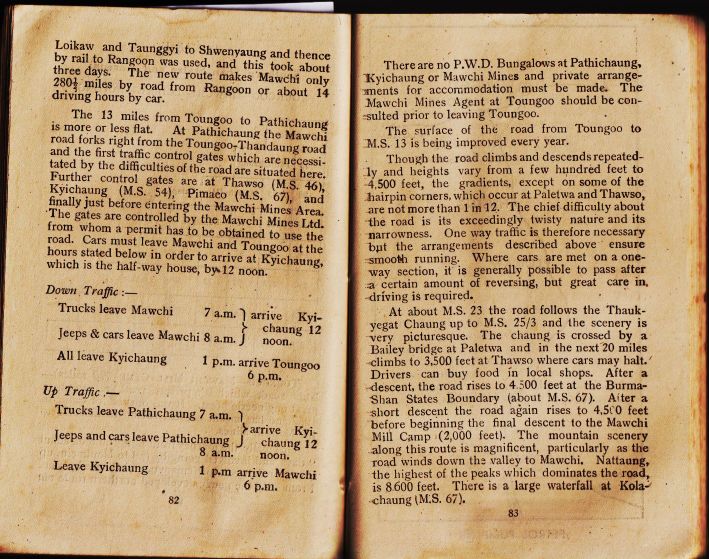 Loikaw and Taunggyi to Shwenyaung and thence
by rail to Rangoon was used, and this took about
three days. The new route makes Mawchi only
280½ miles by road from Rangoon or about 14
driving hours by car.
The 13 miles from Toungoo to Pathichaung
is more or less flat. At Pathichaung the Mawchi
road forks right from the Toungoo-Thandaung road
and the first traffic control gates which are necessi-
tated by the difficulties of the road are situated here.
Further control gates are at Thawso (M.S. 46),
Kyichaung (M.S. 54), Pimaco (M.S. 67), and
finally just before entering the Mawchi Mines Area.
The gates are controlled by the Mawchi Mines Ltd.
from whom a permit has to be obtained to use the
road. Cars must leave Mawchi and Toungoo at the
hours stated below in order to arrive at Kyichaung,
which is the half-way house, by 12 noon.
Down Traffic :—
Trucks leave Mawchi 7 a.m. } arrive Kyi-
chaung 12
Jeeps & cars leave Mawchi 8 a.m. noon.
All leave Kyichaung 1 p.m. arrive Toungoo
6 p.m.
Up Traffic .—
Trucks leave Pathichaung 7 a.m. }
arrive Kyi-
Jeeps and cars leave Pathichaung chaung 12
8 a.m. noon.
Leave Kyichaung 1 p.m arrive Mawchi
6 p.m.
82
There are no P.W.D. Bungalows at Pathichaung,
Kyichaung or Mawchi Mines and private arrange-
ments for accommodation must be made. The
Mawchi Mines Agent at Toungoo should be con-
sulted prior to leaving Toungoo.
The surface of the road from Toungoo to
M.S. 13 is being improved every year.
Though the road climbs and descends repeated-
ly and heights vary from a few hundred feet to
4,500 feet, the gradients, except on some of the
hairpin corners, which occur at Paletwa and Thawso,
are not more than 1 in 12. The chief difficulty about
the road is its exceedingly twisty nature and its
narrowness. One way traffic is therefore necessary
but the arrangements described above ensure
smooth running. Where cars are met on a one-
way section, it is generally possible to pass after
a certain amount of reversing, but great care in
driving is required.
At about M.S. 23 the road follows the Thauk-
yegat Chaung up to M.S. 25/3 and the scenery is
very picturesque. The chaung is crossed by a
Bailey bridge at Paletwa and in the next 20 miles
climbs to 3,500 feet at Thawso where cars may halt.
Drivers can buy food in local shops. After a
descent, the road rises to 4.500 feet at the Burma-
Shan States Boundary (about M.S. 67). After a
short descent the road again rises to 4,500 feet
before beginning the final descent to the Mawchi
Mill Camp (2,000 feet). The mountain scenery
along this route is magnificent, particularly as the
road winds down the valley to Mawchi. Nattaung,
the highest of the peaks which dominates the road,
is 8.600 feet. There is a large waterfall at Kola-
chaung (M.S. 67).
83